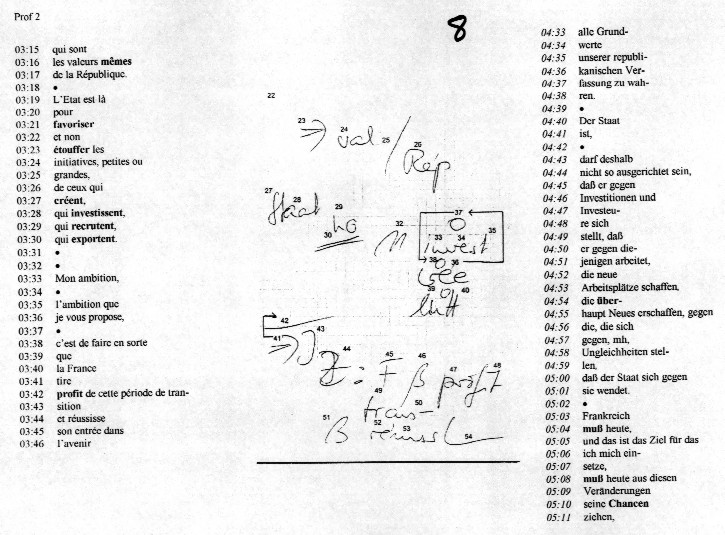 Prof 2
8
03:15 qui sont
03:16 les valeurs mêmes
03:17 de la République.
03:18 •
03:19 L'Etat est là
03:20 pour
03:21 favoriser
03:22 et non
03:23 étouffer les
03:24 initiatives, petites ou
03:25 grandes,
03:26 de ceux qui
03:27 créent,
03:28 qui investissent,
03:29 qui recrutent,
03:30 qui exportent.
03:31 •
03:32 •
03:33 Mon ambition,
03:34 •
03:35 l'ambition que
03:36 je vous propose,
03:37 •
03:38 c'est de faire en sorte
03:39 que
03:40 la France
03:41 tire
03:42 profit de cette période de tran-
03:43 sition
03:44 et réussisse
03:45 son entrée dans
03:46 l'avenir
22
23 24 25 26
⇒ val /
Rép
27 28 29
Staat
30
32 37
33 34 35
invest
38 36
39 40
42
41 43
44 45 46 47 48
Z: F ß prof
49 50
trans-
51 52 53 54
ß réuss
04:33 alle Grund-
04:34 werte
04:35 unserer republi-
04:36 kanischen Ver-
04:37 fassung zu wah-
04:38 ren.
04:39 •
04:40 Der Staat
04:41 ist,
04:42 •
04:43 darf deshalb
04:44 nicht so ausgerichtet sein,
04:45 daß er gegen
04:46 Investitionen und
04:47 Investeu-
04:48 re sich
04:49 stellt, daß
04:50 er gegen die-
04:51 jenigen arbeitet,
04:52 die neue
04:53 Arbeitsplätze schaffen,
04:54 die über-
04:55 haupt Neues erschaffen, gegen
04:56 die, die sich
04:57 gegen, mh,
04:58 Ungleichheiten stel-
04:59 len,
05:00 daß der Staat sich gegen
05:01 sie wendet.
05:02 •
05:03 Frankreich
05:04 muß heute,
05:05 und das ist das Ziel für das
05:06 ich mich ein-
05:07 setze,
05:08 muß heute aus diesen
05:09 Veränderungen
05:10 seine Chancen
05:11 ziehen,